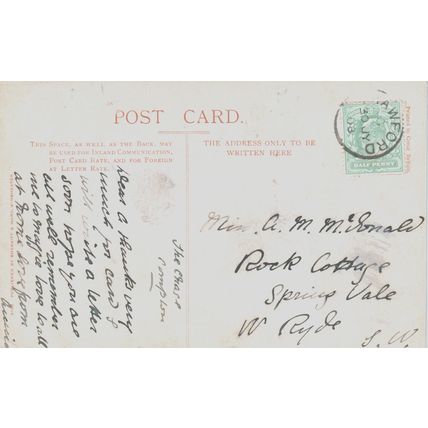 POST CARD.
THIS SPACE, AS WELL AS THE BACK, MAY
BE USED FOR INLAND COMMUNICATION,
POST CARD RATE, AND FOR FOREIGN
AT LETTER RATE.
THE ADDRESS ONLY TO BE
WRITTEN HERE
HALF PENNY
The Chase
Dear A Thanks very
much for card I
will write a letter
soon hope you are
all well remember
me to love to all
at home from
Annie
Miss A. M. McDonald
Rock Cottage
Spring Vale
W Ryde
I. W.